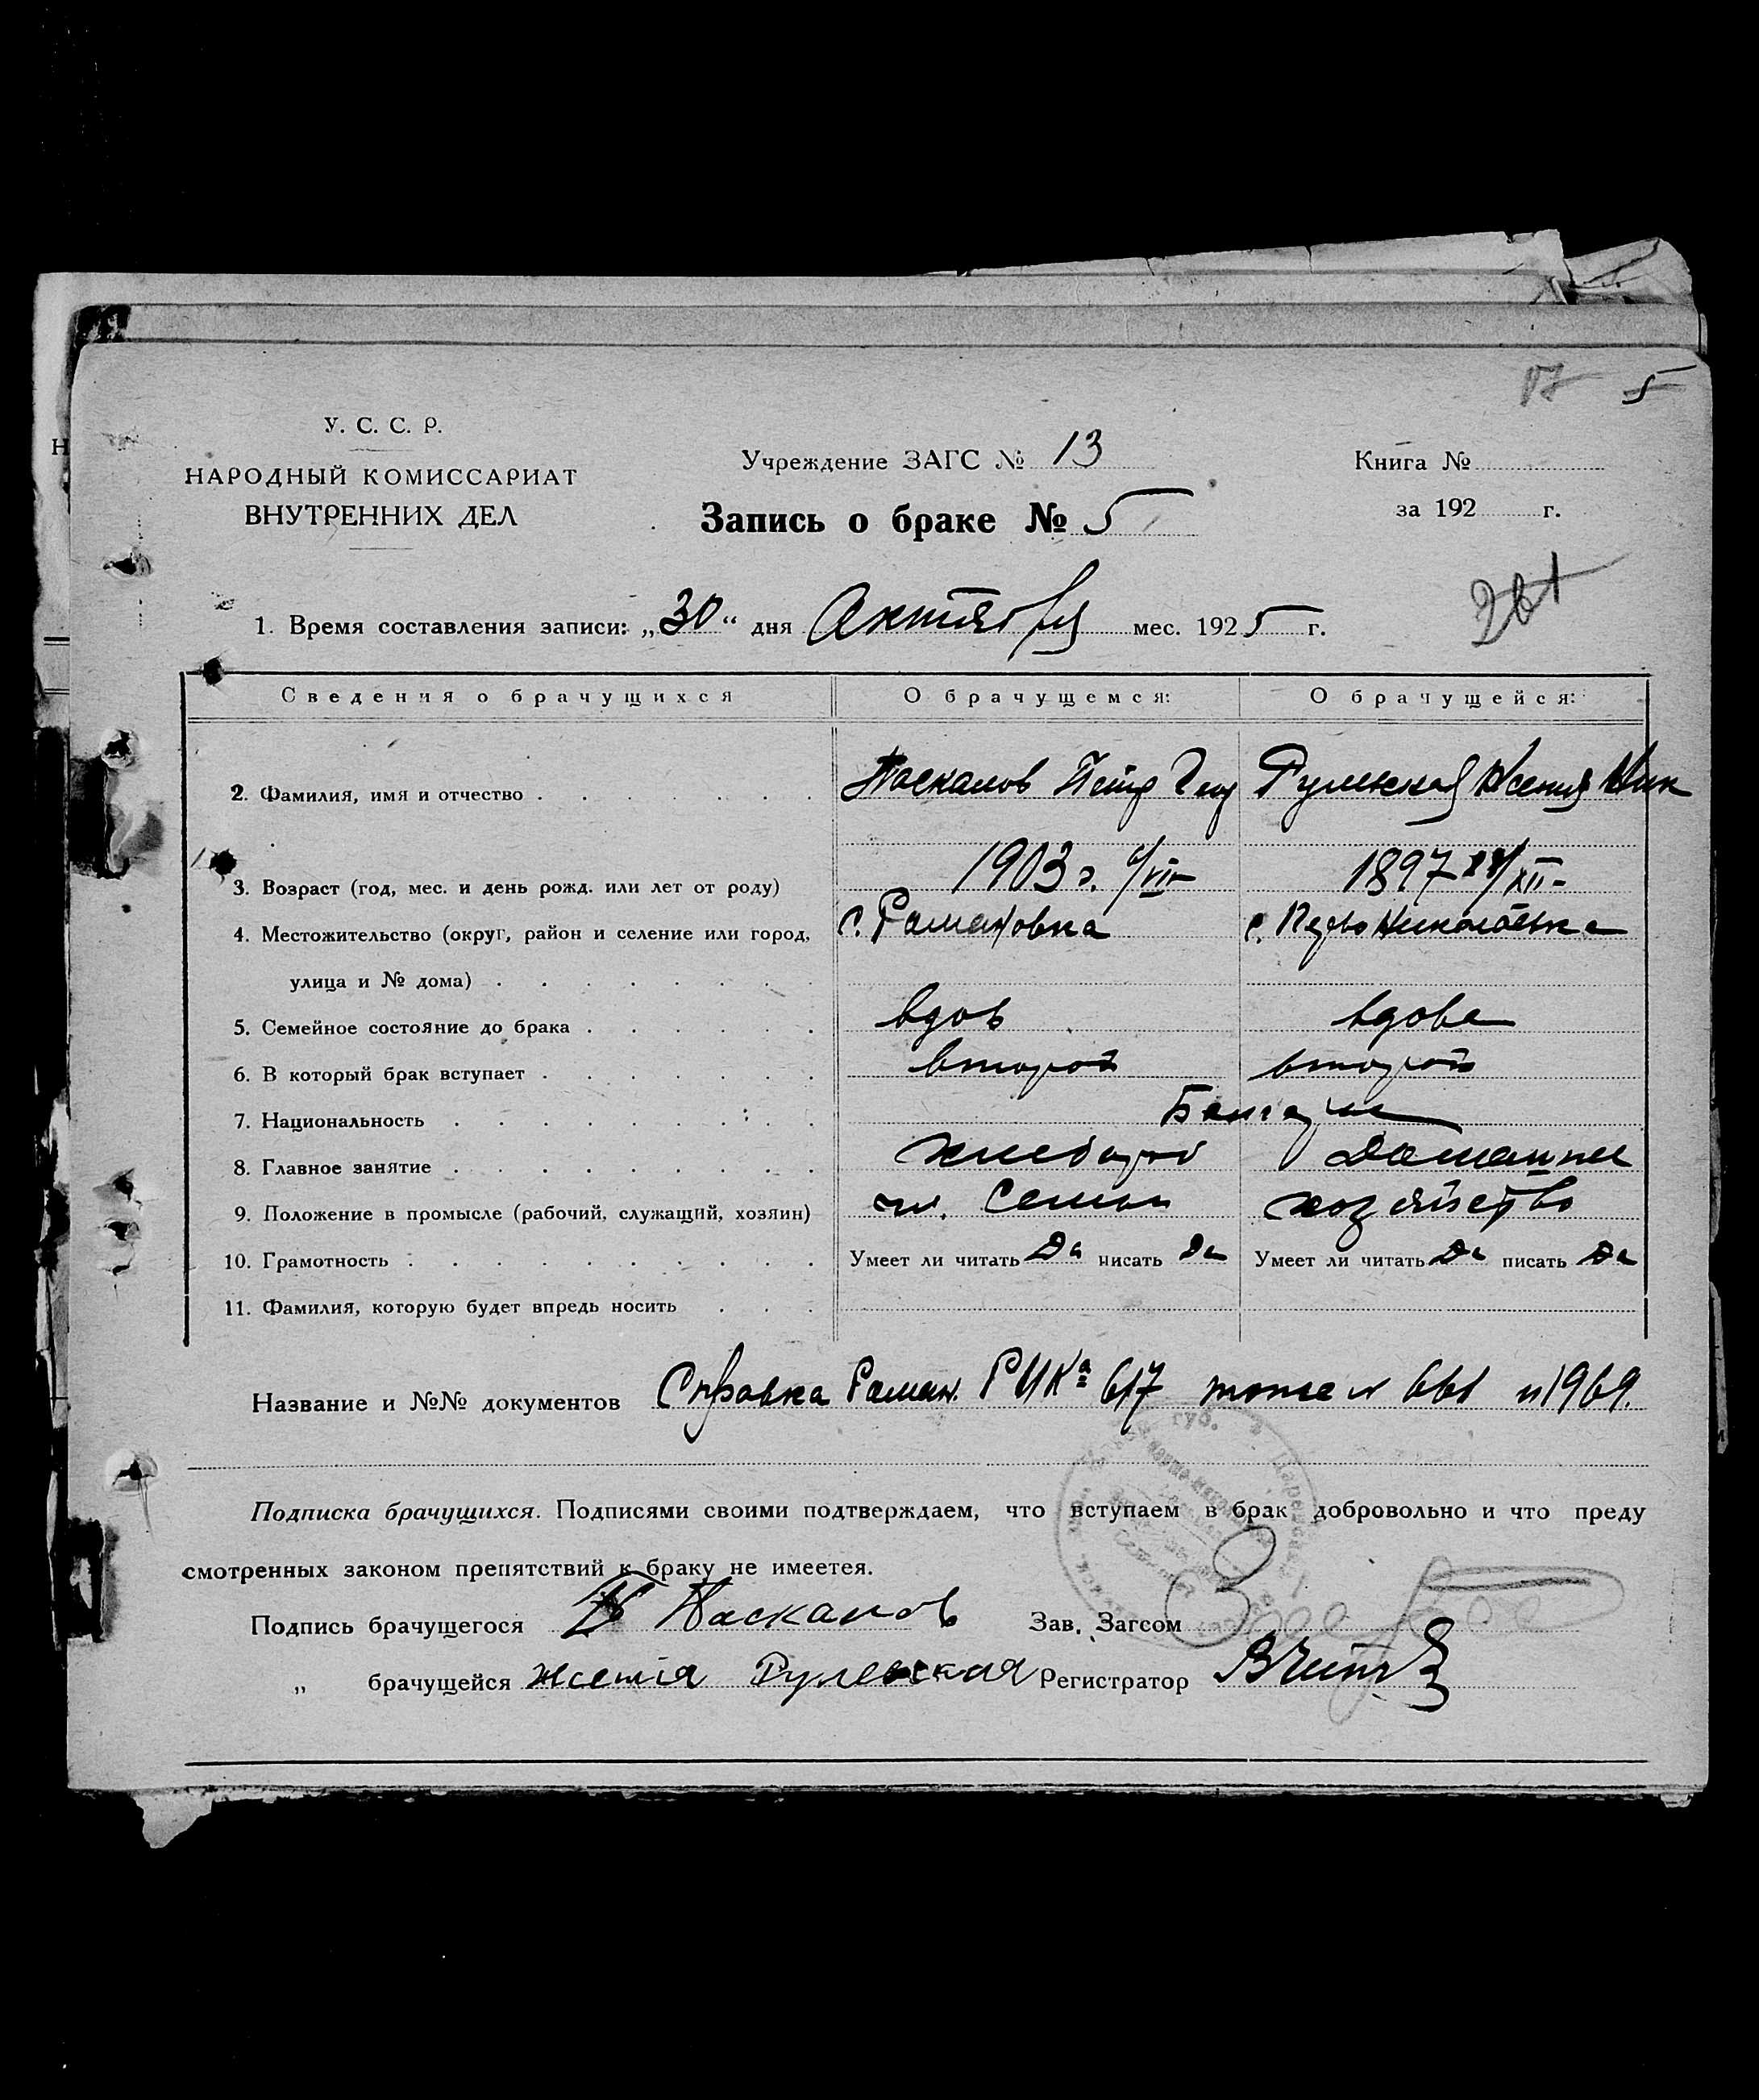 5
У. С. С. Р.
НАРОДНЫЙ КОМИССАРИАТ
ВНУТРЕННИХ ДЕЛ
Учреждение ЗАГС № 13
Книга №
за 192 г.
Запись о браке № 5
261
1. Время составления записи: „30“ дня Октября мес. 1925 г.
Сведения о брачущихся О брачущемся: О брачущейся:
2. Фамилия, имя и отчество Паскалов Петр Рулевская Ксения Ник
3. Возраст (год, мес. и день рожд. или лет от роду) 1903 г. /VII 1897 /XII
4. Местожительство (округ, район и селение или город, с. Романовка с.
улица и № дома)
5. Семейное состояние до брака вдов вдова
6. В который брак вступает второй второй
7. Национальность
8. Главное занятие хлебороб Домашнее
9. Положение в промысле (рабочий, служащий, хозяин) чл. семьи хозяйство
10. Грамотность Умеет ли читать Да писать Да Умеет ли читать Да писать Да
11. Фамилия, которую будет впредь носить
Название и №№ документов Справка Роман. РИКа 617 тоже 661 и 1969.
Подписка брачущихся. Подписями своими подтверждаем, что вступаем в брак добровольно и что преду
смотренных законом препятствий к браку не имеетея.
Подпись брачущегося П Паскалов Зав. Загсом
„ брачущейся Ксенія Рулевская Регистратор